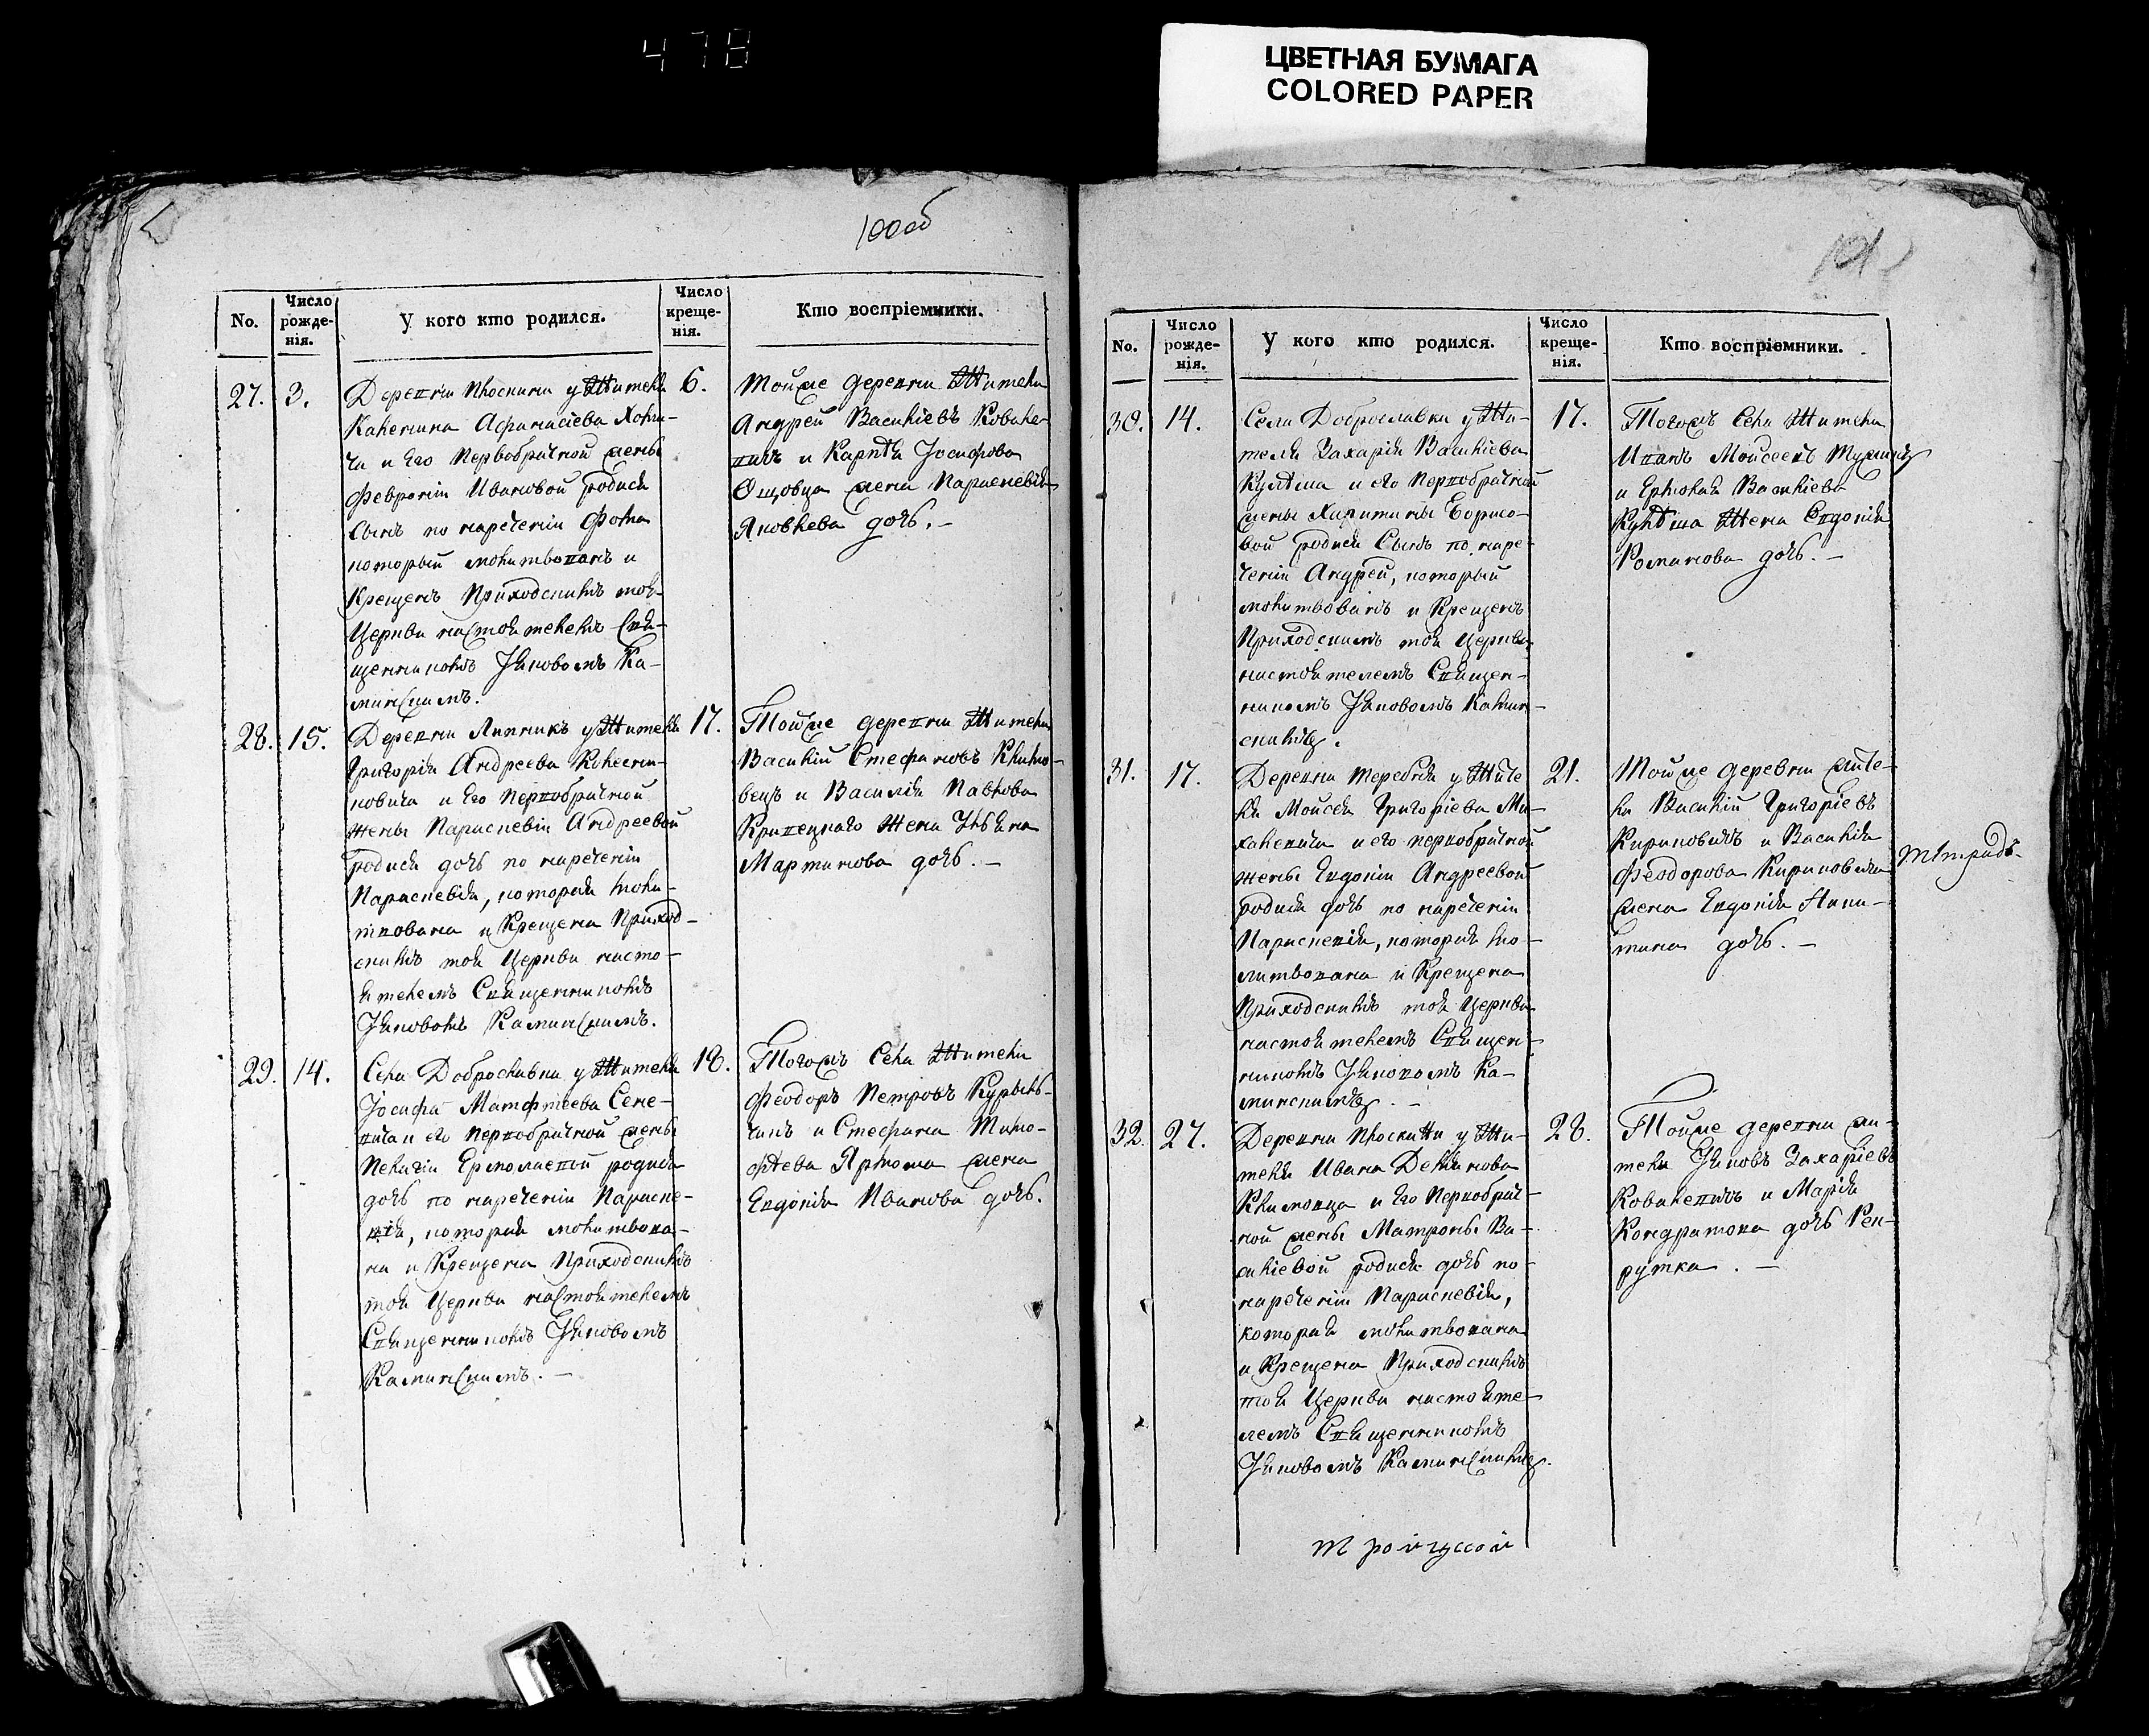 478
ЦВЕТНАЯ БУМАГА
COLORED PAPER
100 об
No.
Число рожденія.
У кого кто родился.
Число крещенія.
Кто воспріемники.
27. 3.
Деревни Плоскини у Жителя
Калеников Афанасіева
и Его Первобрачной жены
Февроніи Ивановой родися
Сынъ по нареченіи Фома
который молитвованъ и
Крещенъ Приходскимъ тоя
Церкви настоятелемъ Свя-
щенникомъ Іяковомъ Ка-
минскимъ.
6.
Тойже деревни Жители
Андрей Василіевъ Ковале-
вичъ и Карпа Іосифова
жена Параскевія
Яковлева дочь. —
28. 15.
Деревни Липникъ у Жителя
Григорія Андреева Колесни-
ковича и Его Первобрачной
жены Параскевіи Андреевой
родися дочь по нареченіи
Параскевія, которая моли-
твована и Крещена Приход-
скимъ тоя Церкви насто-
ятелемъ Священникомъ
Іяковомъ Каминскимъ.
17.
Тойже деревни Жители
Василій Стефановъ Климо-
вецъ и Василія Павлова
Кривецкаго Жена Уліяна
Мартинова дочь. —
29. 14.
Села Доброславки у Жителя
Іосифа Матфѣева Сене-
вича и его Первобрачной жены
Пелагіи Ермолаевой родися
дочь по нареченіи Параске-
вія, которая молитвова-
на и Крещена Приходскимъ
тоя Церкви настоятелемъ
Священникомъ Іяковомъ
Каминскимъ. —
18.
Тогожъ Села Жители
Феодоръ Петровъ
и Стефана Тимо-
фѣева Ярмоша жена
Евдокія Иванова дочь.
101
No.
Число рожденія.
У кого кто родился.
Число крещенія.
Кто воспріемники.
30. 14.
Села Доброславки у Жи-
теля Захарія Василіева
Кулѣша и его Первобрачной
жены Харитины Борисо-
вой родися Сынъ по наре-
ченіи Андрей, который
молитвованъ и Крещенъ
Приходскимъ тоя Церкви
настоятелемъ Священ-
никомъ Іяковомъ Камин-
скимъ.
17.
Тогожъ Села Жители
Иванъ Моисеевъ
и Ермолая Василіева
Кулѣша Жена Евдокія
Романова дочь. —
31. 17.
Деревни Теребня у Жите-
ля Моисея Григоріева Ми-
халевича и его первобрачной
жены Евдокіи Андреевой
родися дочь по нареченіи
Параскевія, которая мо-
литвована и Крещена
Приходскимъ тоя Церкви
настоятелемъ Священ-
никомъ Іяковомъ Ка-
минскимъ. —
21.
Тойже деревни жите-
ли Василій Григоріевъ
Кириковичъ и Василія
Феодорова Кириковича
жена Евдокія Ники-
тина дочь. —
32. 27.
Деревни Плоскини у Жи-
теля Ивана Деміянова
Климовца и Его Первобрач-
ной жены Матроны Ва-
силіевой родися дочь по
нареченіи Параскевія,
которая молитвована
и Крещена Приходскимъ
тоя Церкви настояте-
лемъ Священникомъ
Іяковомъ Каминскимъ.
28.
Тойже деревни жи-
тели Іяковъ Захаріевъ
Ковалевичъ и Марія
Кондратова дочь Рек-
рутка. —